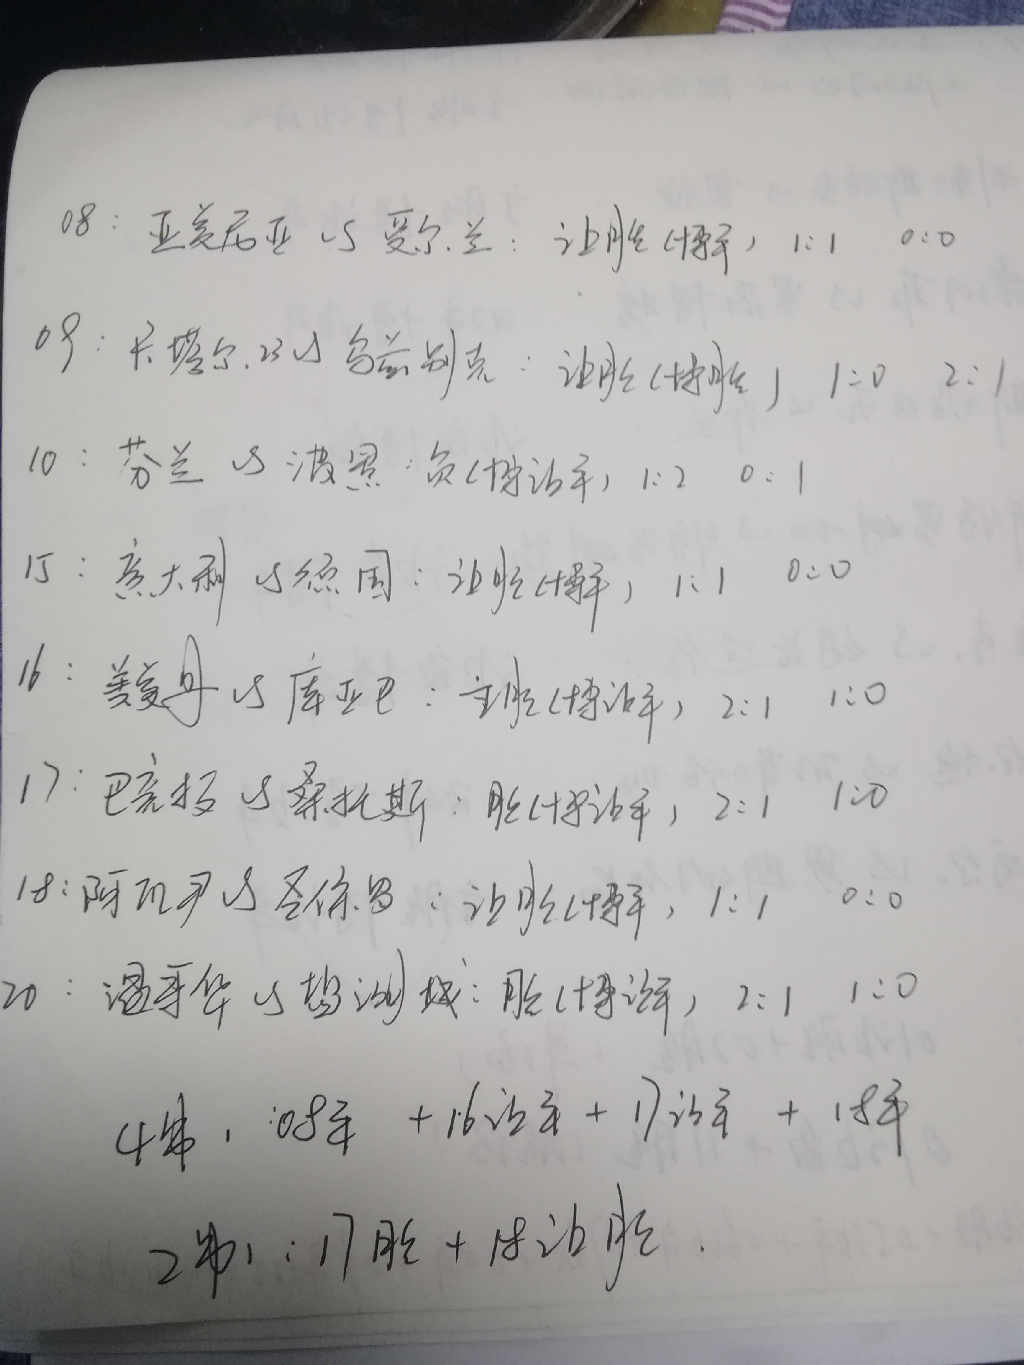 08: 亚美尼亚 VS 爱尔兰: 让胜(博平) 1:1 0:0
09: 卡塔尔23 VS 乌兹别克: 让胜(博胜) 1:0 2:1
10: 芬兰 VS 波黑: 负(博让平) 1:2 0:1
15: 意大利 VS 德国: 让胜(博平) 1:1 0:0
16: 美 VS 库亚巴: 主胜(博让平) 2:1 1:0
17: 巴竞技 VS 桑托斯: 胜(博让平) 2:1 1:0
18: 阿瓦尹 VS 圣保罗: 让胜(博平) 1:1 0:0
20: 温哥华 VS 盐湖城: 胜(博让平) 2:1 1:0
4串1:08平 +16让平 +17让平 +18平
2串1:17胜 + 18让胜.